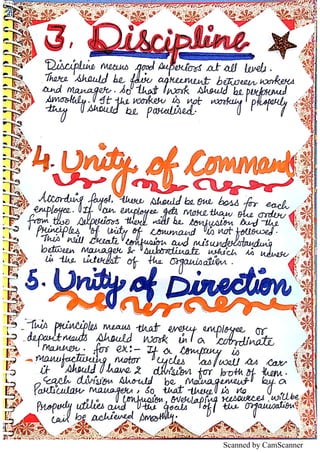 3. Discipline
Discipline means good superiors at all levels.
There should be fair agreement between workers
and manager. So that work should be performed
smoothly. If the worker is not working properly
they should be paralised.
4. Unity of Command
According fayol, there should be one boss for each
employee. If an employee gets more than one order
from two superiors there will be confusion and the
Principles of unity of command is not followed.
This will create confusion and misunderstanding
between manager & subordinate which is never
in the interest of the Organisation.
5. Unity of Direction
This principles means that every employee or
departments should work in a coordinate
Manner. for ex:- If a company is
manufacturing motor cycles as well as car
it should have 2 division for both of them.
Each division should be management by a
Particular managers. So that there is no
confusion, overlaping resources will be
Properly utilies and the goals of the organisation
can be achieved smoothly.
Scanned by CamScanner